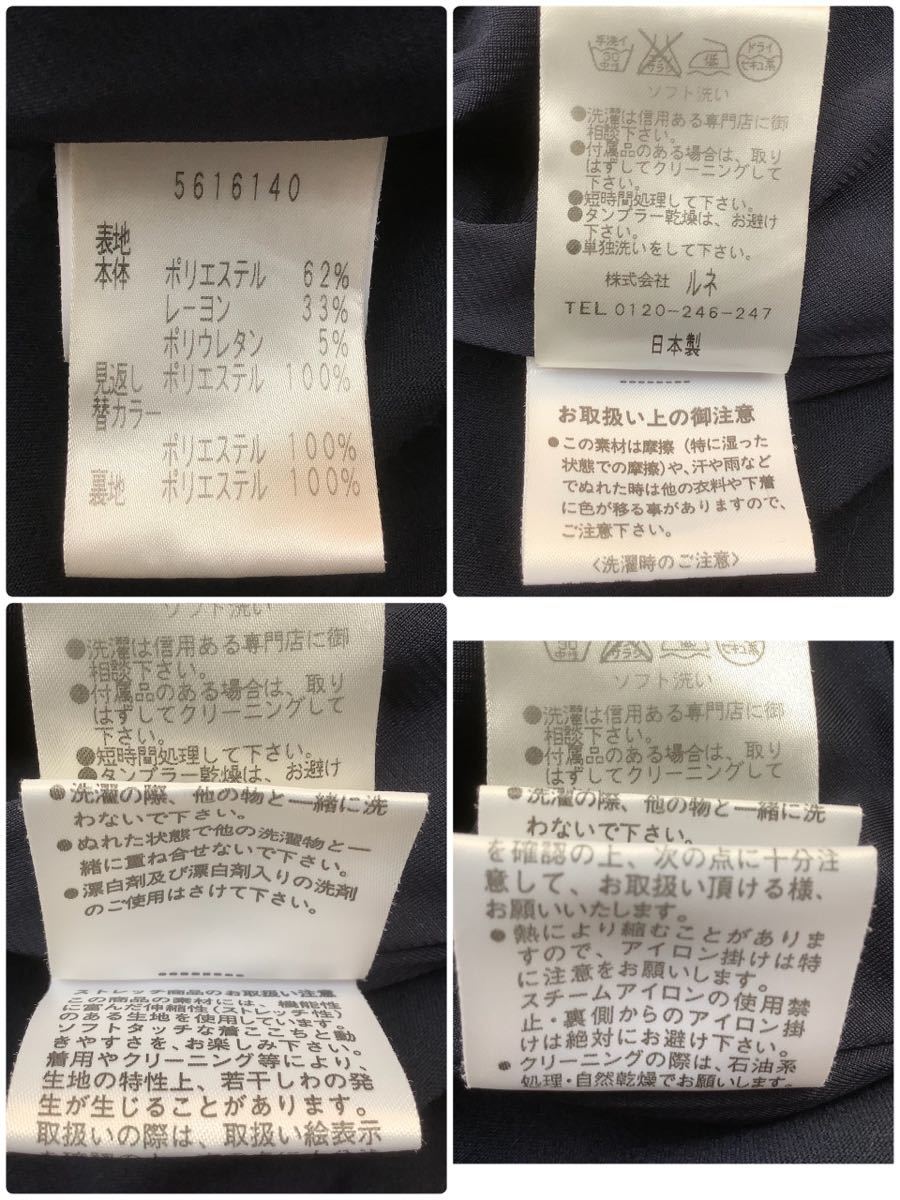 5616140
表地
本体 ポリエステル 62%
レーヨン 33%
ポリウレタン 5%
見返し ポリエステル 100%
替カラー
ポリエステル 100%
裏地 ポリエステル 100%
手洗イ ドライ
30 低
中性 エンソサラシ セキユ系
ソフト洗い
●洗濯は信用ある専門店に御
相談下さい。
●付属品のある場合は、取り
はずしてクリーニングして
下さい。
●短時間処理して下さい。
●タンブラー乾燥は、お避け
下さい。
●単独洗いをして下さい。
株式会社 ルネ
TEL 0120-246-247
日本製
--------
お取扱い上の御注意
●この素材は摩擦（特に湿った
状態での摩擦）や、汗や雨など
でぬれた時は他の衣料や下着
に色が移る事がありますので、
ご注意下さい。
〈洗濯時のご注意〉
ソフト洗い
●洗濯は信用ある専門店に御
相談下さい。
●付属品のある場合は、取り
はずしてクリーニングして
下さい。
●短時間処理して下さい。
●タンブラー乾燥は、お避け
●洗濯の際、他の物と一緒に洗
わないで下さい。
●ぬれた状態で他の洗濯物と一
緒に重ね合せないで下さい。
●漂白剤及び漂白剤入りの洗剤
のご使用はさけて下さい。
--------
ストレッチ商品のお取扱い注意
この商品の素材には、機能性
に富んだ伸縮性(ストレッチ性)
のある生地を使用しています。
ソフトタッチな着ここちと動
きやすさを、お楽しみ下さい。
着用やクリーニング等により、
生地の特性上、若干しわの発
生が生じることがあります。
取扱いの際は、取扱い絵表示
30
中性 セキユ系
ソフト洗い
●洗濯は信用ある専門店に御
相談下さい。
●付属品のある場合は、取り
はずしてクリーニングして
●洗濯の際、他の物と一緒に洗
わないで下さい。
を確認の上、次の点に十分注
意して、お取扱い頂ける様、
お願いいたします。
●熱により縮むことがありま
すので、アイロン掛けは特
に注意をお願いします。
スチームアイロンの使用禁
止・裏側からのアイロン掛
けは絶対にお避け下さい。
●クリーニングの際は、石油系
処理・自然乾燥でお願いします。